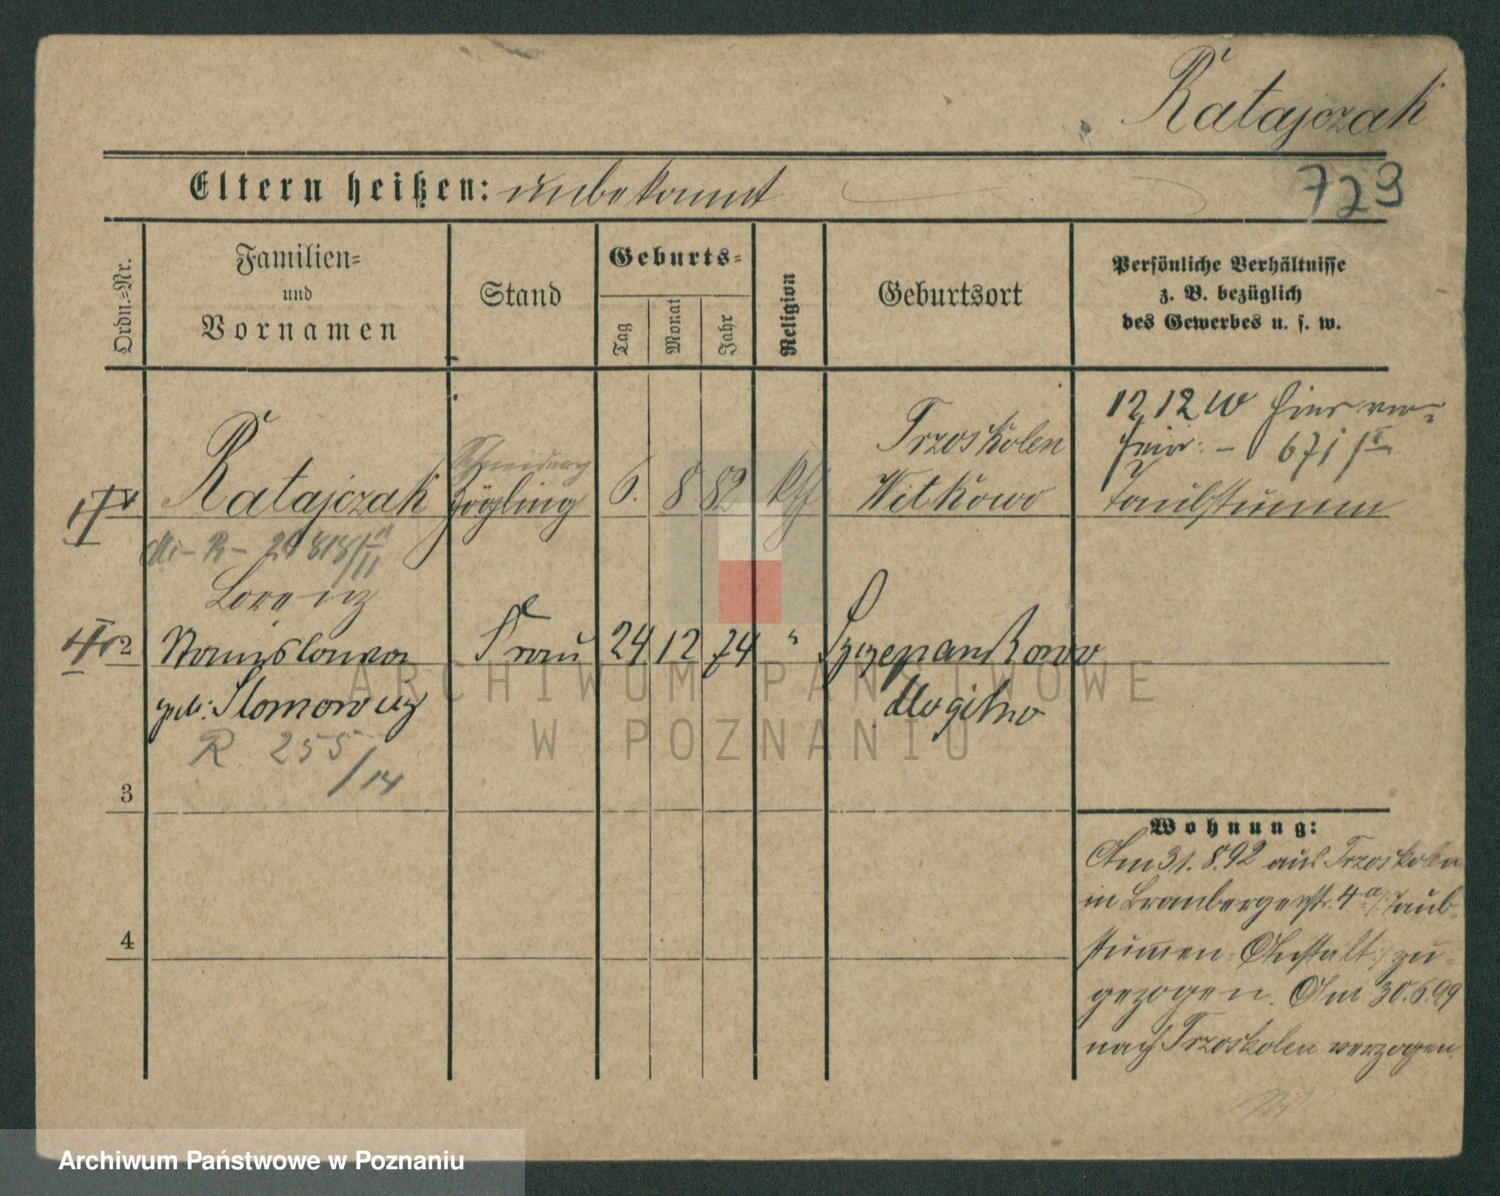 Ratajczak
Eltern heißen: unbekannt
729
Ordn.=Nr.
Familien=
und
Vornamen
Stand
Geburts=
Tag
Monat
Jahr
Religion
Geburtsort
Persönliche Verhältnisse
z. B. bezüglich
des Gewerbes u. s. w.
12 12 10 hier ver=
heir: – 671
Trzoskolen
Ratajczak Zögling 6. 8 82 kth Witkowo taubstumm
Lorenz
2 Stanislawa Frau 24 12 74 " Szczepankowo
geb. Slomowicz Mogilno
R. 255/14
3
Wohnung:
Am 31.8.92 aus Trzoskolen
in Brombergerstr. 4a/: Taub=
stummen=Anstalt :/ zu=
gezogen. Am 30.6.99
nach Trzoskolen verzogen.
4
ARCHIWUM PAŃSTWOWE
W POZNANIU
Archiwum Państwowe w Poznaniu